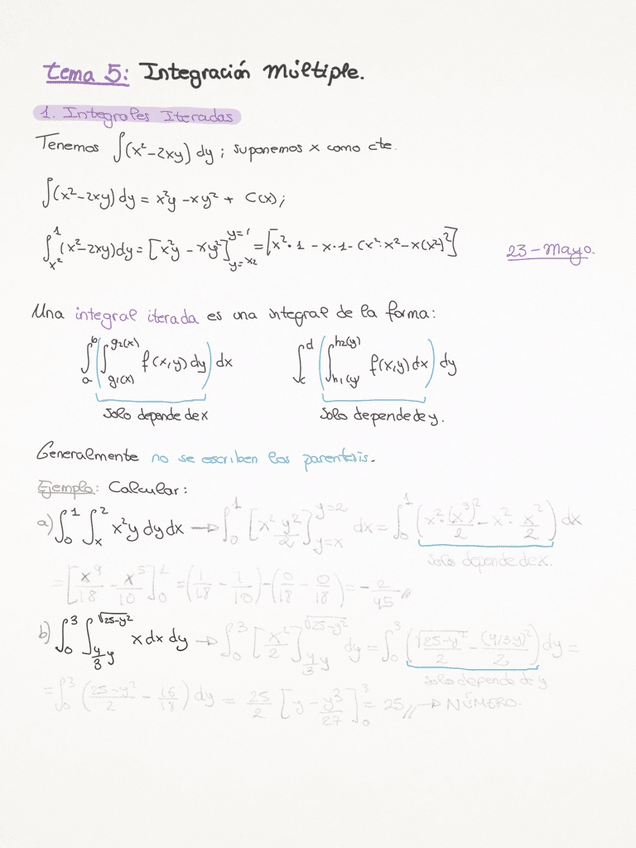 Tema 5: Integración Múltiple.
1. Integrales Iteradas
Tenemos ∫(x²-2xy) dy ; suponemos x como cte.
∫(x²-2xy) dy = x²y - xy² + C(x);
∫_{x²}^{1} (x²-2xy)dy = [x²y - xy²]_{y=x²}^{y=1} = [x²·1 - x·1 - (x²·x² - x(x²)²]
23-Mayo.
Una integral iterada es una integral de la forma:
∫_a^b (∫_{g1(x)}^{g2(x)} f(x,y) dy) dx ∫_c^d (∫_{h1(y)}^{h2(y)} f(x,y) dx) dy
Solo depende de x Solo depende de y.
Generalmente no se escriben los parentesis.
Ejemplo: Calcular:
a) ∫_0^1 ∫_x^2 x²y dy dx → ∫_0^1 [x² y²/2]_{y=x}^{y=2} dx = ∫_0^1 (x²·(x³)²/2 - x²·x²/2) dx
Solo depende x.
= [x⁹/18 - x⁵/10]_0^1 = (1/18 - 1/10) - (0/18 - 0/18) = -2/45 //
b) ∫_0^3 ∫_{4/3 y}^{√25-y²} x dx dy → ∫_0^3 [x²/2]_{4/3 y}^{√25-y²} dy = ∫_0^3 (√25-y²/2 - (4/3y)²/2) dy =
Solo depende de y
= ∫_0^3 (25-y²/2 - 16/18) dy = 25/2 [y - y³/27]_0^3 = 25 // → NÚMERO.